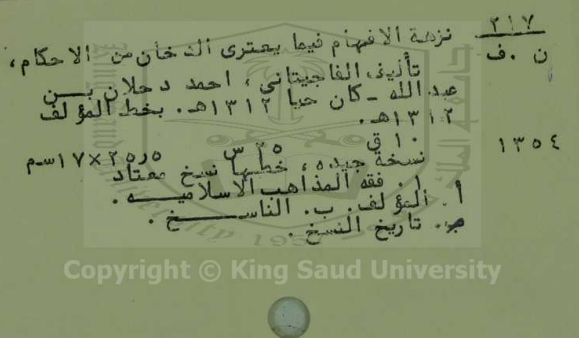 ٢١٧
ن . ف
نزهة الافهام فيما يعترى الدخان من الاحكام،
تأليف الفاجيتاني، احمد دحلان بن
عبد الله - كان حيا ١٣١٢هـ. بخط المؤلف
١٣١٢هـ.
١٠ ق ٢٥ س ٢٥٫٥×١٧سم
١٣٥٤
نسخة جيده، خطها نسخ معتاد
١. فقه المذاهب الاسلاميه.
أ. المؤلف. ب. الناسخ.
جـ. تاريخ النسخ.
Copyright © King Saud University